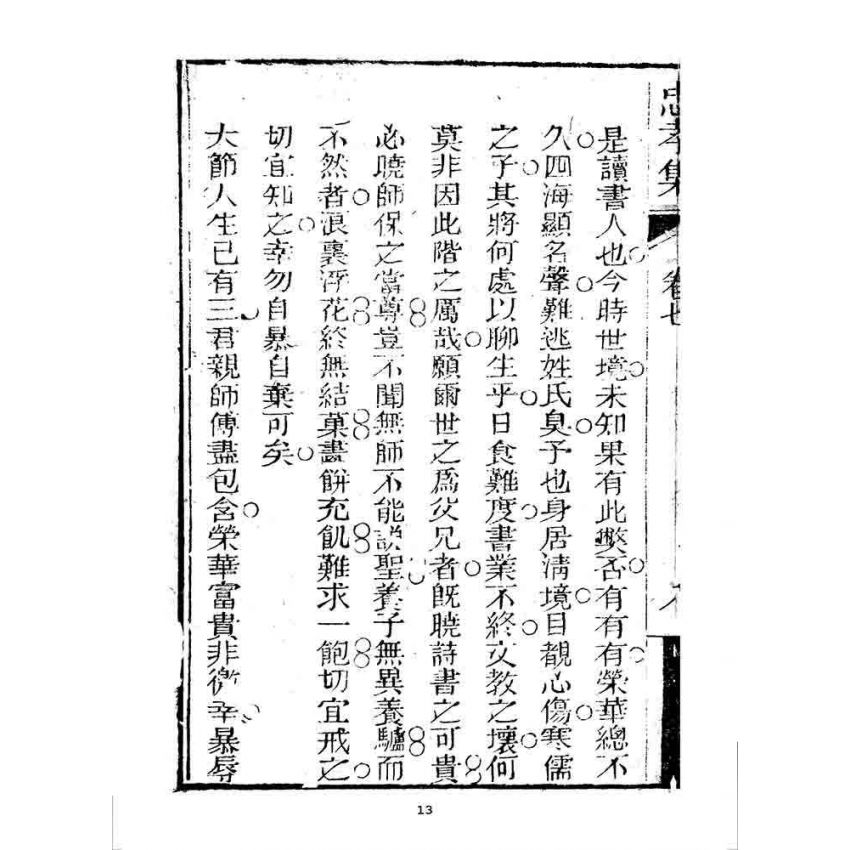 忠孝集 卷七
是讀書人也今時世境未知果有此獘否有有有榮華總不
久四海顯名聲難逃姓氏臭予也身居淸境目覩心傷寒儒
之子其將何處以聊生乎日食難度書業不終文教之壞何
莫非因此階之厲哉願爾世之爲父兄者旣曉詩書之可貴
必曉師保之當尊豈不聞無師不能説聖養子無異養驢而
不然者浪裏浮花終無結菓畵餅充飢難求一飽切宜戒之
切宜知之幸勿自暴自棄可矣
大節人生已有三君親師傅盡包含榮華富貴非徼幸暴辱
13